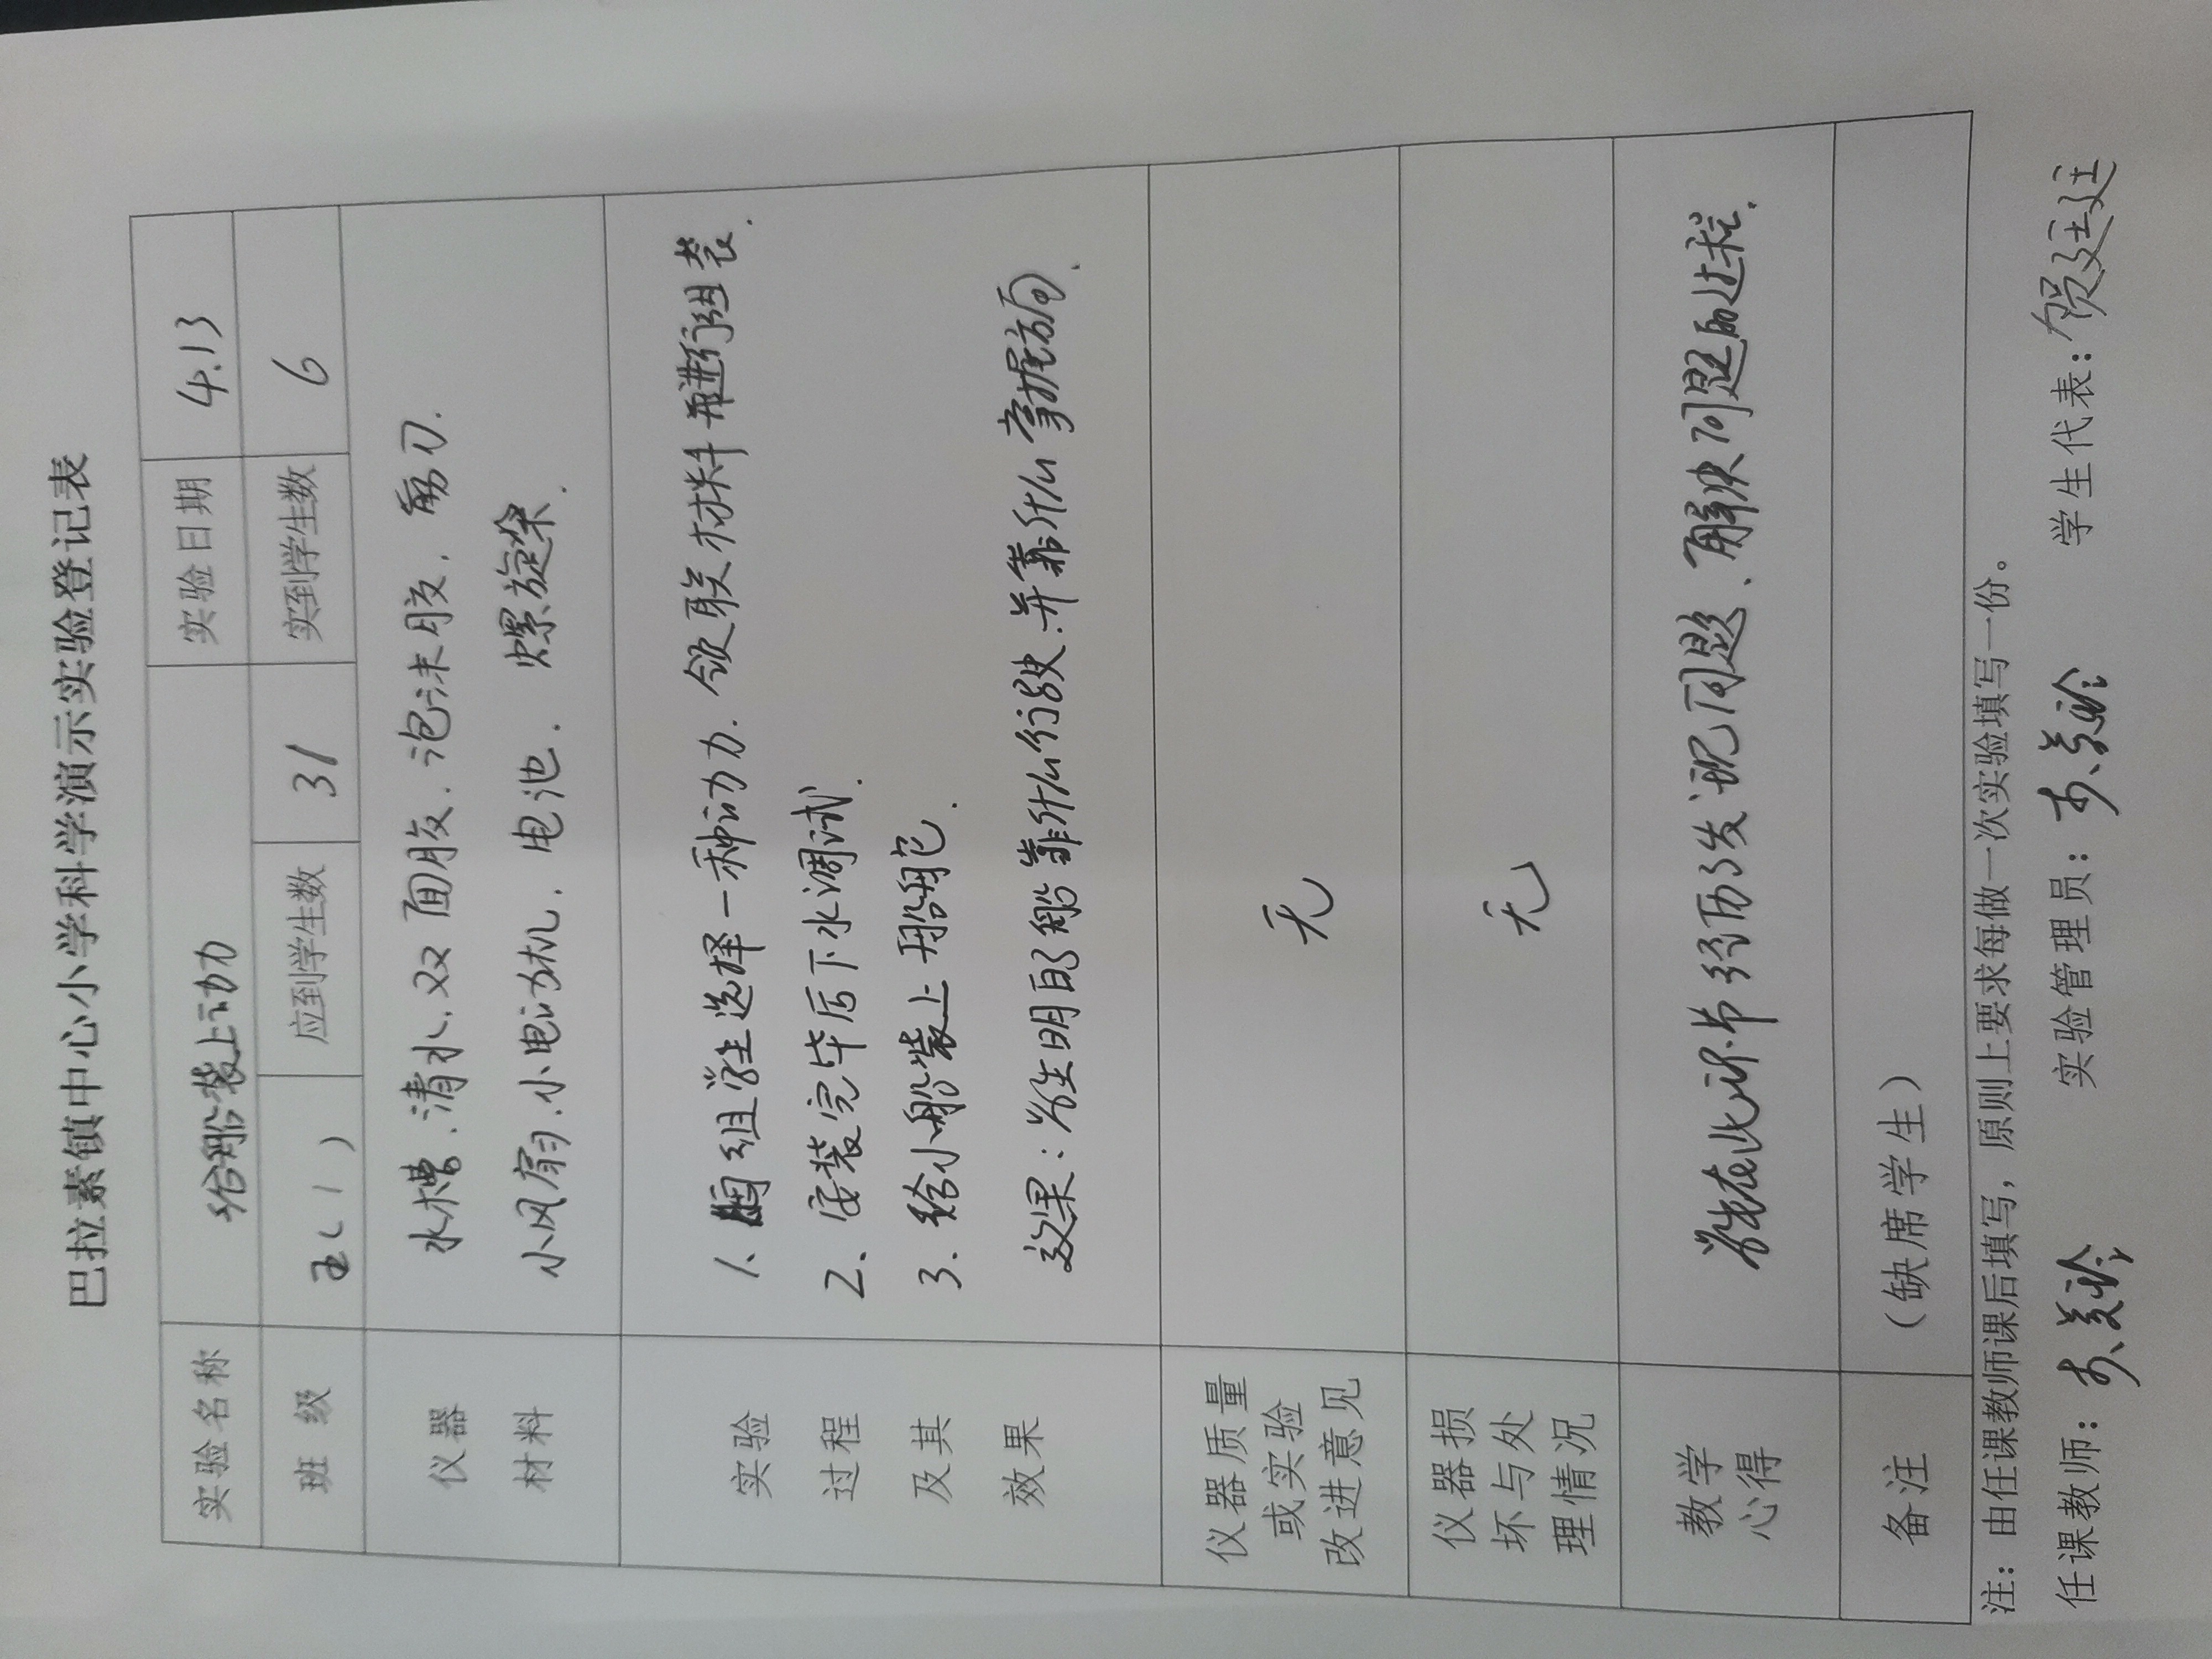 巴拉素镇中心小学科学演示实验登记表
实验名称 给船装上动力 实验日期 4.13
班 级 五(1) 应到学生数 31 实到学生数 6
仪器
材料
水槽、清水、双面胶、泡沫胶、剪刀.
小风扇、小电动机、电池、螺旋桨.
实验
过程
及其
效果
1、每组学生选择一种动力、领取材料进行组装.
2、安装完毕后下水调试.
3.给小船装上船舵.
效果:学生明白了船靠什么行驶.并靠什么掌握方向.
仪器质量
或实验
改进意见
无
仪器损
坏与处
理情况
无
教学
心得
学生在此环节经历了发现问题、解决问题的过程.
备注 (缺席学生)
注:由任课教师课后填写,原则上要求每做一次实验填写一份。
任课教师: 实验管理员: 学生代表: